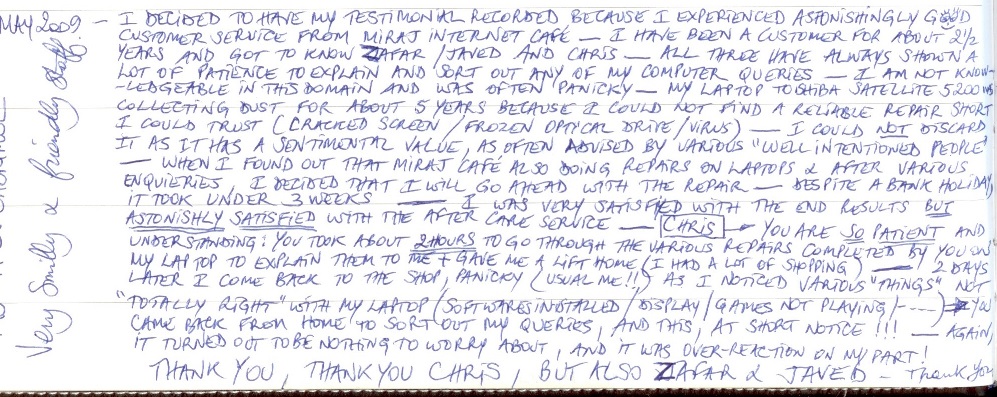 MAY 2009. – I DECIDED TO HAVE MY TESTIMONIAL RECORDED BECAUSE I EXPERIENCED ASTONISHINGLY GOOD
CUSTOMER SERVICE FROM MIRAJ INTERNET CAFÉ – I HAVE BEEN A CUSTOMER FOR ABOUT 2½
YEARS AND GOT TO KNOW ZAFAR / JAVED AND CHRIS – ALL THREE HAVE ALWAYS SHOWN A
LOT OF PATIENCE TO EXPLAIN AND SORT OUT ANY OF MY COMPUTER QUERIES – I AM NOT KNOW-
-LEDGEABLE IN THIS DOMAIN AND WAS OFTEN PANICKY – MY LAPTOP TOSHIBA SATELLITE 5200 WAS
COLLECTING DUST FOR ABOUT 5 YEARS BECAUSE I COULD NOT FIND A RELIABLE REPAIR SHORT
I COULD TRUST (CRACKED SCREEN / FROZEN OPTICAL DRIVE / VIRUS) – I COULD NOT DISCARD
IT AS IT HAS A SENTIMENTAL VALUE, AS OFTEN ADVISED BY VARIOUS "WELL INTENTIONED PEOPLE"
– WHEN I FOUND OUT THAT MIRAJ CAFÉ ALSO DOING REPAIRS ON LAPTOPS & AFTER VARIOUS
ENQUIERIES, I DECIDED THAT I WILL GO AHEAD WITH THE REPAIR – DESPITE A BANK HOLIDAY,
IT TOOK UNDER 3 WEEKS – I WAS VERY SATISFIED WITH THE END RESULTS BUT
ASTONISHLY SATISFIED WITH THE AFTER CARE SERVICE – CHRIS – YOU ARE SO PATIENT AND
UNDERSTANDING: YOU TOOK ABOUT 2 HOURS TO GO THROUGH THE VARIOUS REPAIRS COMPLETED BY YOU ON
MY LAPTOP TO EXPLAIN THEM TO ME + GAVE ME A LIFT HOME (I HAD A LOT OF SHOPPING) – 2 DAYS
LATER I COME BACK TO THE SHOP, PANICKY (USUAL ME!!) AS I NOTICED VARIOUS "THINGS" NOT
"TOTALLY RIGHT" WITH MY LAPTOP (SOFTWARES INSTALLED / DISPLAY / GAMES NOT PLAYING / ----) YOU
CAME BACK FROM HOME TO SORT OUT MY QUERIES, AND THIS, AT SHORT NOTICE!!! – AGAIN,
IT TURNED OUT TO BE NOTHING TO WORRY ABOUT, AND IT WAS OVER-REACTION ON MY PART!
THANK YOU, THANK YOU CHRIS, BUT ALSO ZAFAR & JAVED – Thank you
Very Smilly & friendly Staff